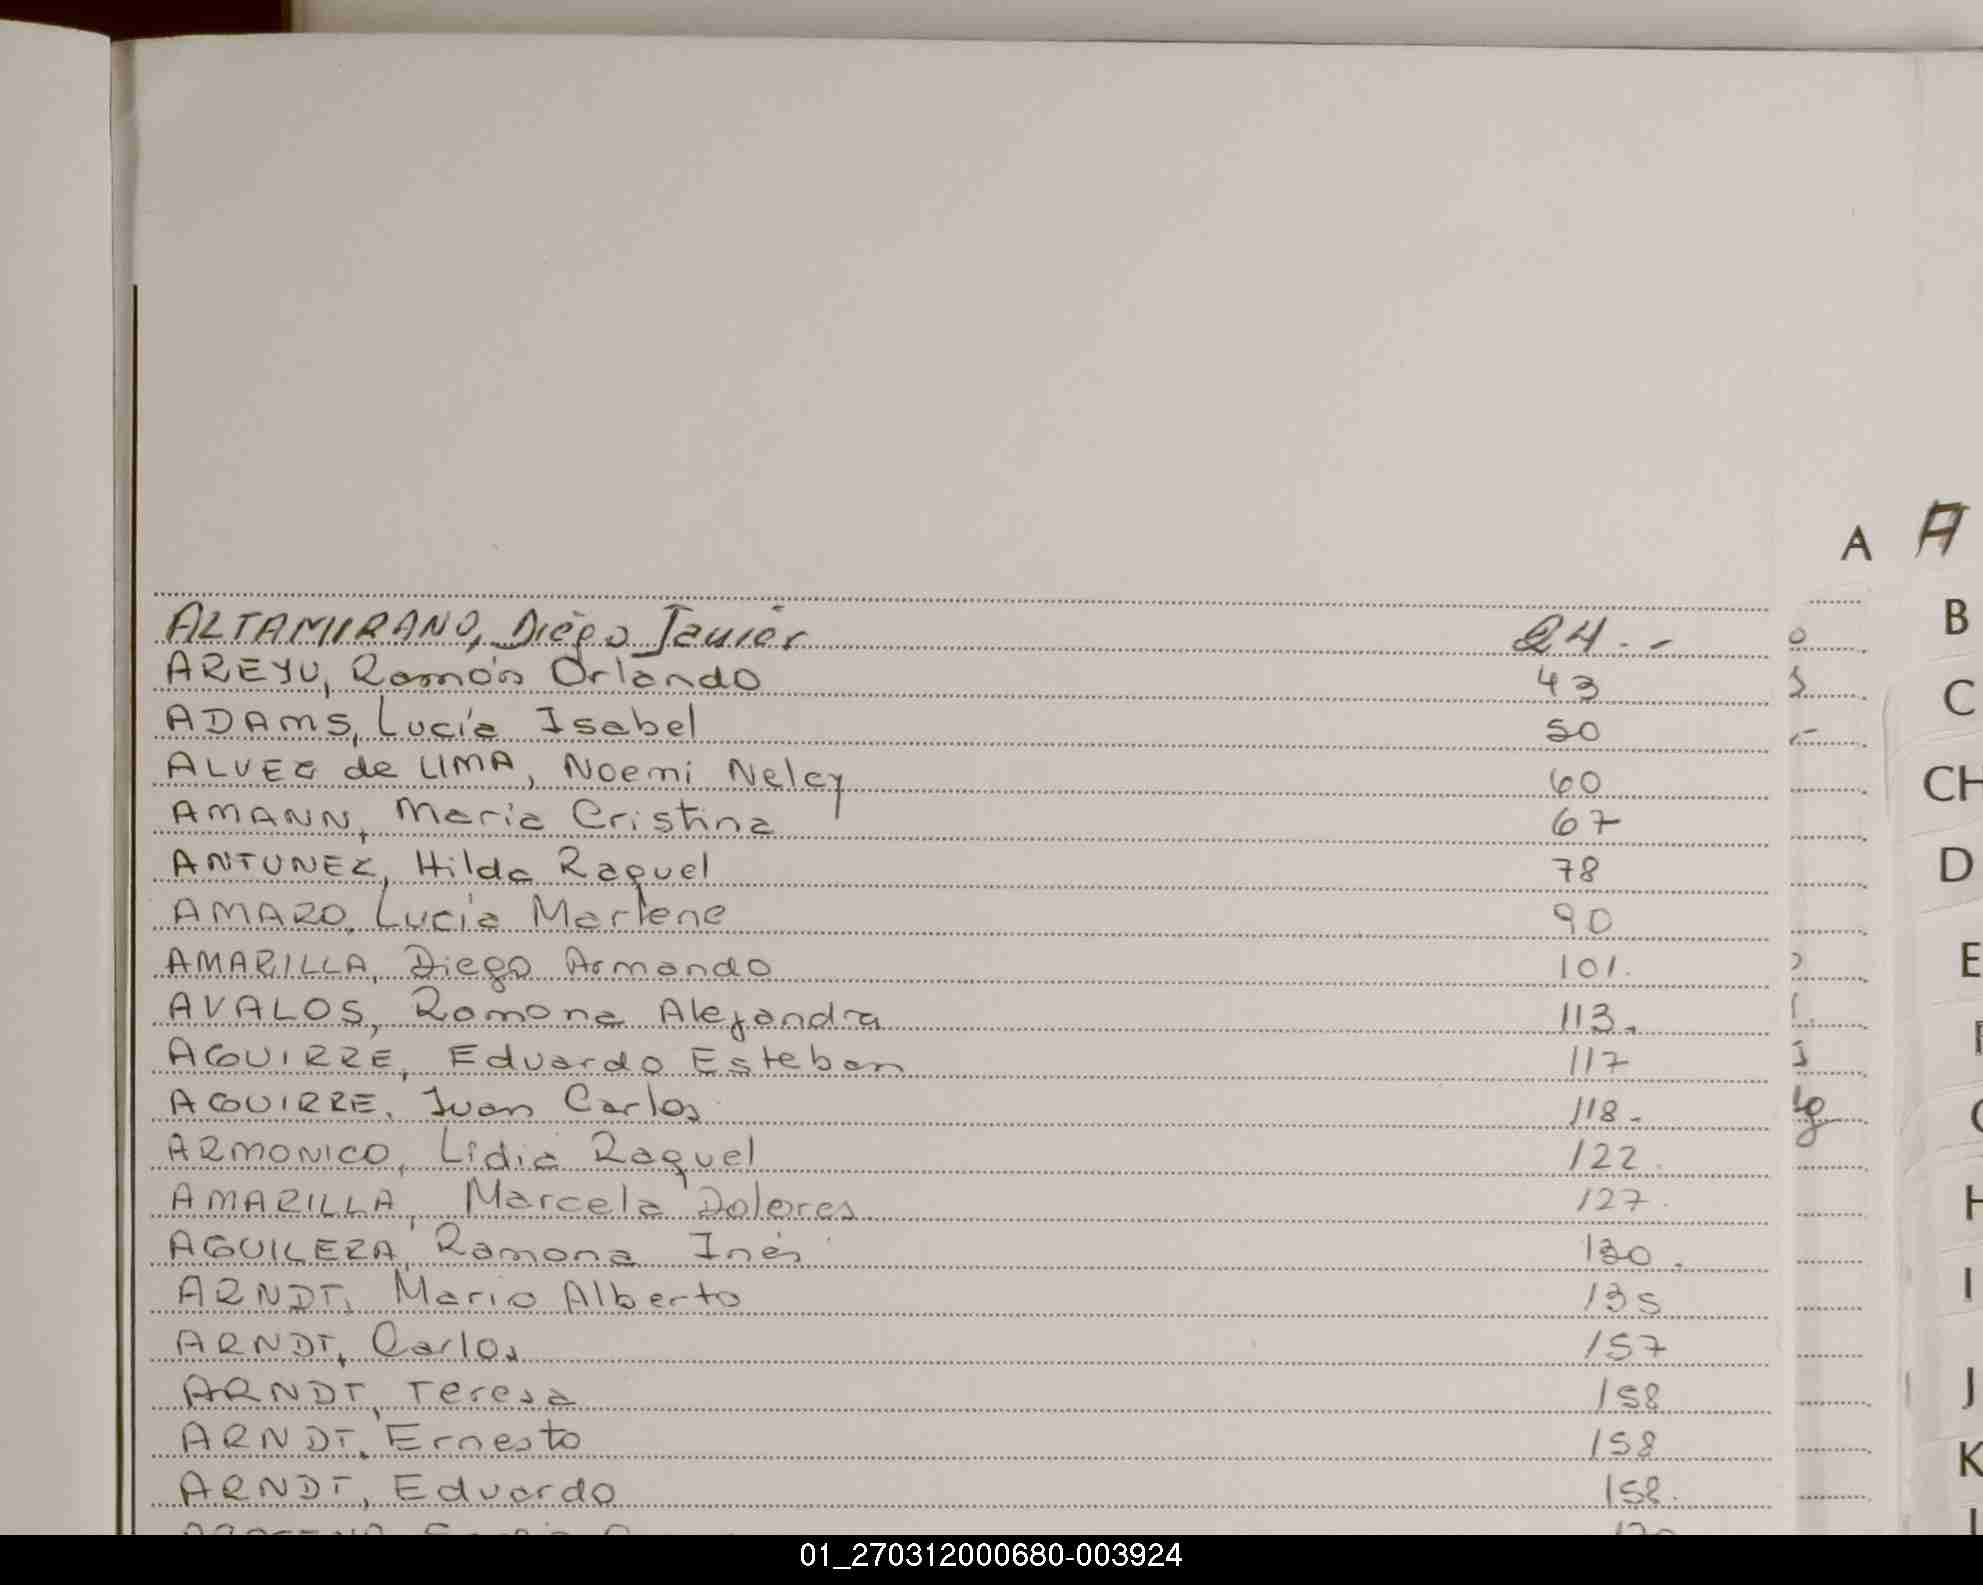 A A
B
ALTAMIRANO, Diego Javier 24.-
AREYU, Ramón Orlando 43
C
ADAMS, Lucía Isabel 50
ALVEZ de LIMA, Noemi Nelcy 60
CH
AMANN, María Cristina 67
ANTUNEZ, Hilda Raquel 78
D
AMARO, Lucía Marlene 90
AMARILLA, Diego Armando 101.
E
AVALOS, Ramona Alejandra 113.
AGUIRRE, Eduardo Esteban 117
AGUIRRE, Juan Carlos 118.
ARMONICO, Lidia Raquel 122.
AMARILLA, Marcela Dolores 127.
H
AGUILERA, Ramona Inés 130.
I
ARNDT, Mario Alberto 135
ARNDT, Carlos 157
ARNDT, Teresa 158
J
ARNDT, Ernesto 158
K
ARNDT, Eduardo 158.
01_270312000680-003924